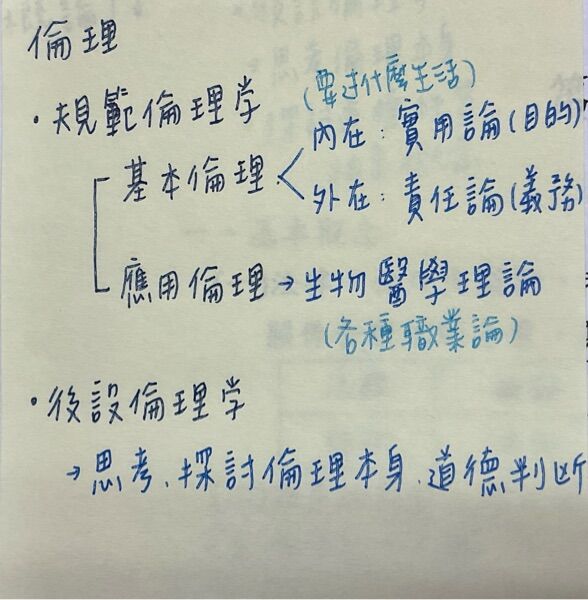 倫理
・規範倫理学
(要過什麼生活)
基本倫理 < 內在:實用論(目的)
外在:責任論(義務)
應用倫理→生物醫學理論
(各種職業論)
・後設倫理学
→思考、探討倫理本身、道德判斷